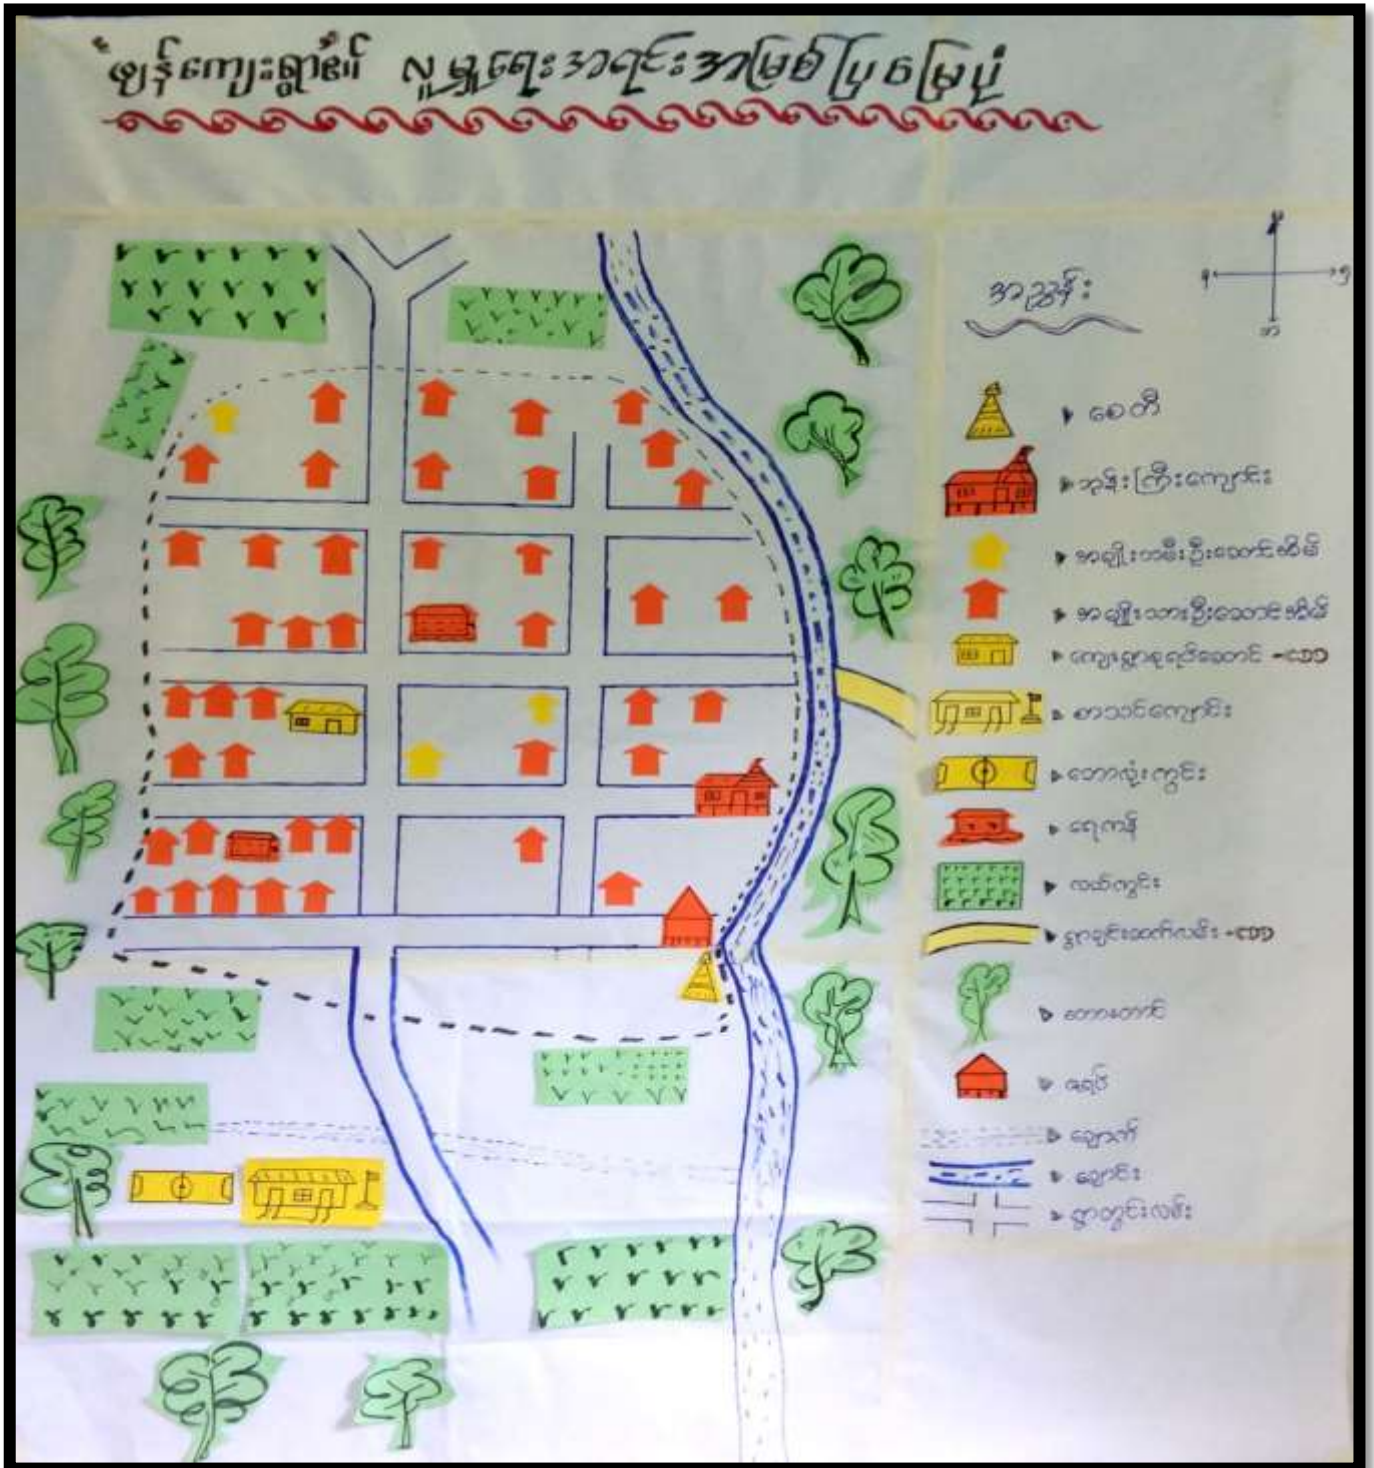 "ဖျန်ကျေးရွာ၏" လူမှုရေးအရင်းအမြစ်ပြမြေပုံ
မ
အညွှန်း
တ
စေတီ
ဘုန်းကြီးကျောင်း
အမျိုးသမီးဦးဆောင်အိမ်
အမျိုးသားဦးဆောင်အိမ်
ကျေးရွာစုရပ်ဆောင် -LDD
စာသင်ကျောင်း
ဘောလုံးကွင်း
ရေကန်
လယ်ကွင်း
ရွာချင်းဆက်လမ်း -LDD
တောတောင်
ဇရပ်
ချောက်
ချောင်း
ရွာတွင်းလမ်း